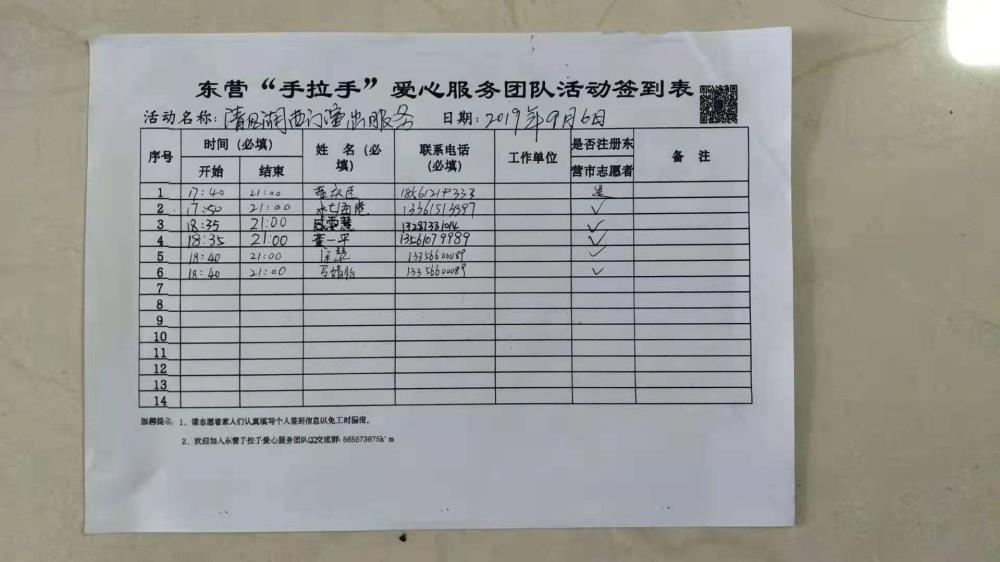 东营“手拉手”爱心服务团队活动签到表
活动名称：清风湖西门演出服务 日期：2019年9月6日
序号 时间（必填） 姓 名（必填） 联系电话（必填） 工作单位 是否注册东营市志愿者 备 注
开始 结束
1 17:40 21:00 18561219333 是
2 17:50 21:00 13361513997 ✓
3 18:35 21:00 13287331014 ✓
4 18:35 21:00 董一平 13561079989 ✓
5 18:40 21:00 13356600089 ✓
6 18:40 21:00 13356600089 ✓
7
8
9
10
11
12
13
14
温馨提示：1、请志愿者家人们认真填写个人签到信息以免工时漏报。
2、欢迎加入东营手拉手爱心服务团队QQ交流群：565573675k'm